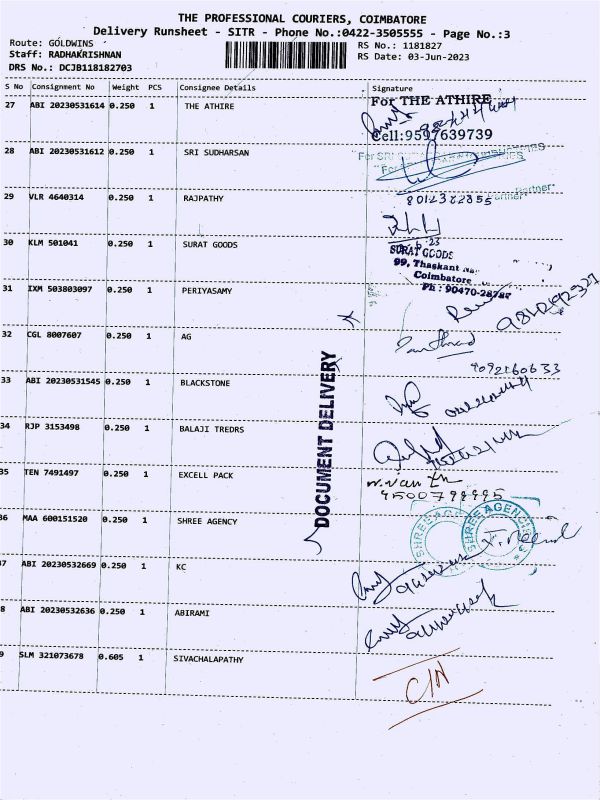 THE PROFESSIONAL COURIERS, COIMBATORE
Delivery Runsheet - SITR - Phone No.:0422-3505555 - Page No.:3
Route: GOLDWINS
RS No.: 1181827
Staff: RADHAKRISHNAN
RS Date: 03-Jun-2023
DRS No.: DCJB118182703
S No Consignment No Weight PCS Consignee Details Signature
27 ABI 20230531614 0.250 1 THE ATHIRE For THE ATHIRE
Cell:9597639739
28 ABI 20230531612 0.250 1 SRI SUDHARSAN For SRI
Partner
29 VLR 4640314 0.250 1 RAJPATHY 8012382855
30 KLM 501041 0.250 1 SURAT GOODS SURAT GOODS
99, Thaskant
Coimbatore
31 IXM 503803097 0.250 1 PERIYASAMY Ph : 90470-28787
32 CGL 8007607 0.250 1 AG
9092160633
33 ABI 20230531545 0.250 1 BLACKSTONE
34 RJP 3153498 0.250 1 BALAJI TREDRS
35 TEN 7491497 0.250 1 EXCELL PACK
36 MAA 600151520 0.250 1 SHREE AGENCY SHREE AGENCIES
37 ABI 20230532669 0.250 1 KC
38 ABI 20230532636 0.250 1 ABIRAMI
39 SLM 321073678 0.605 1 SIVACHALAPATHY C/N
DOCUMENT DELIVERY